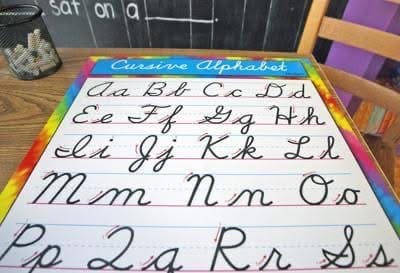 sat on a
Cursive Alphabet
Aa Bb Cc Dd
Ee Ff Gg Hh
Ii Jj Kk Ll
Mm Nn Oo
Pp Qq Rr Ss